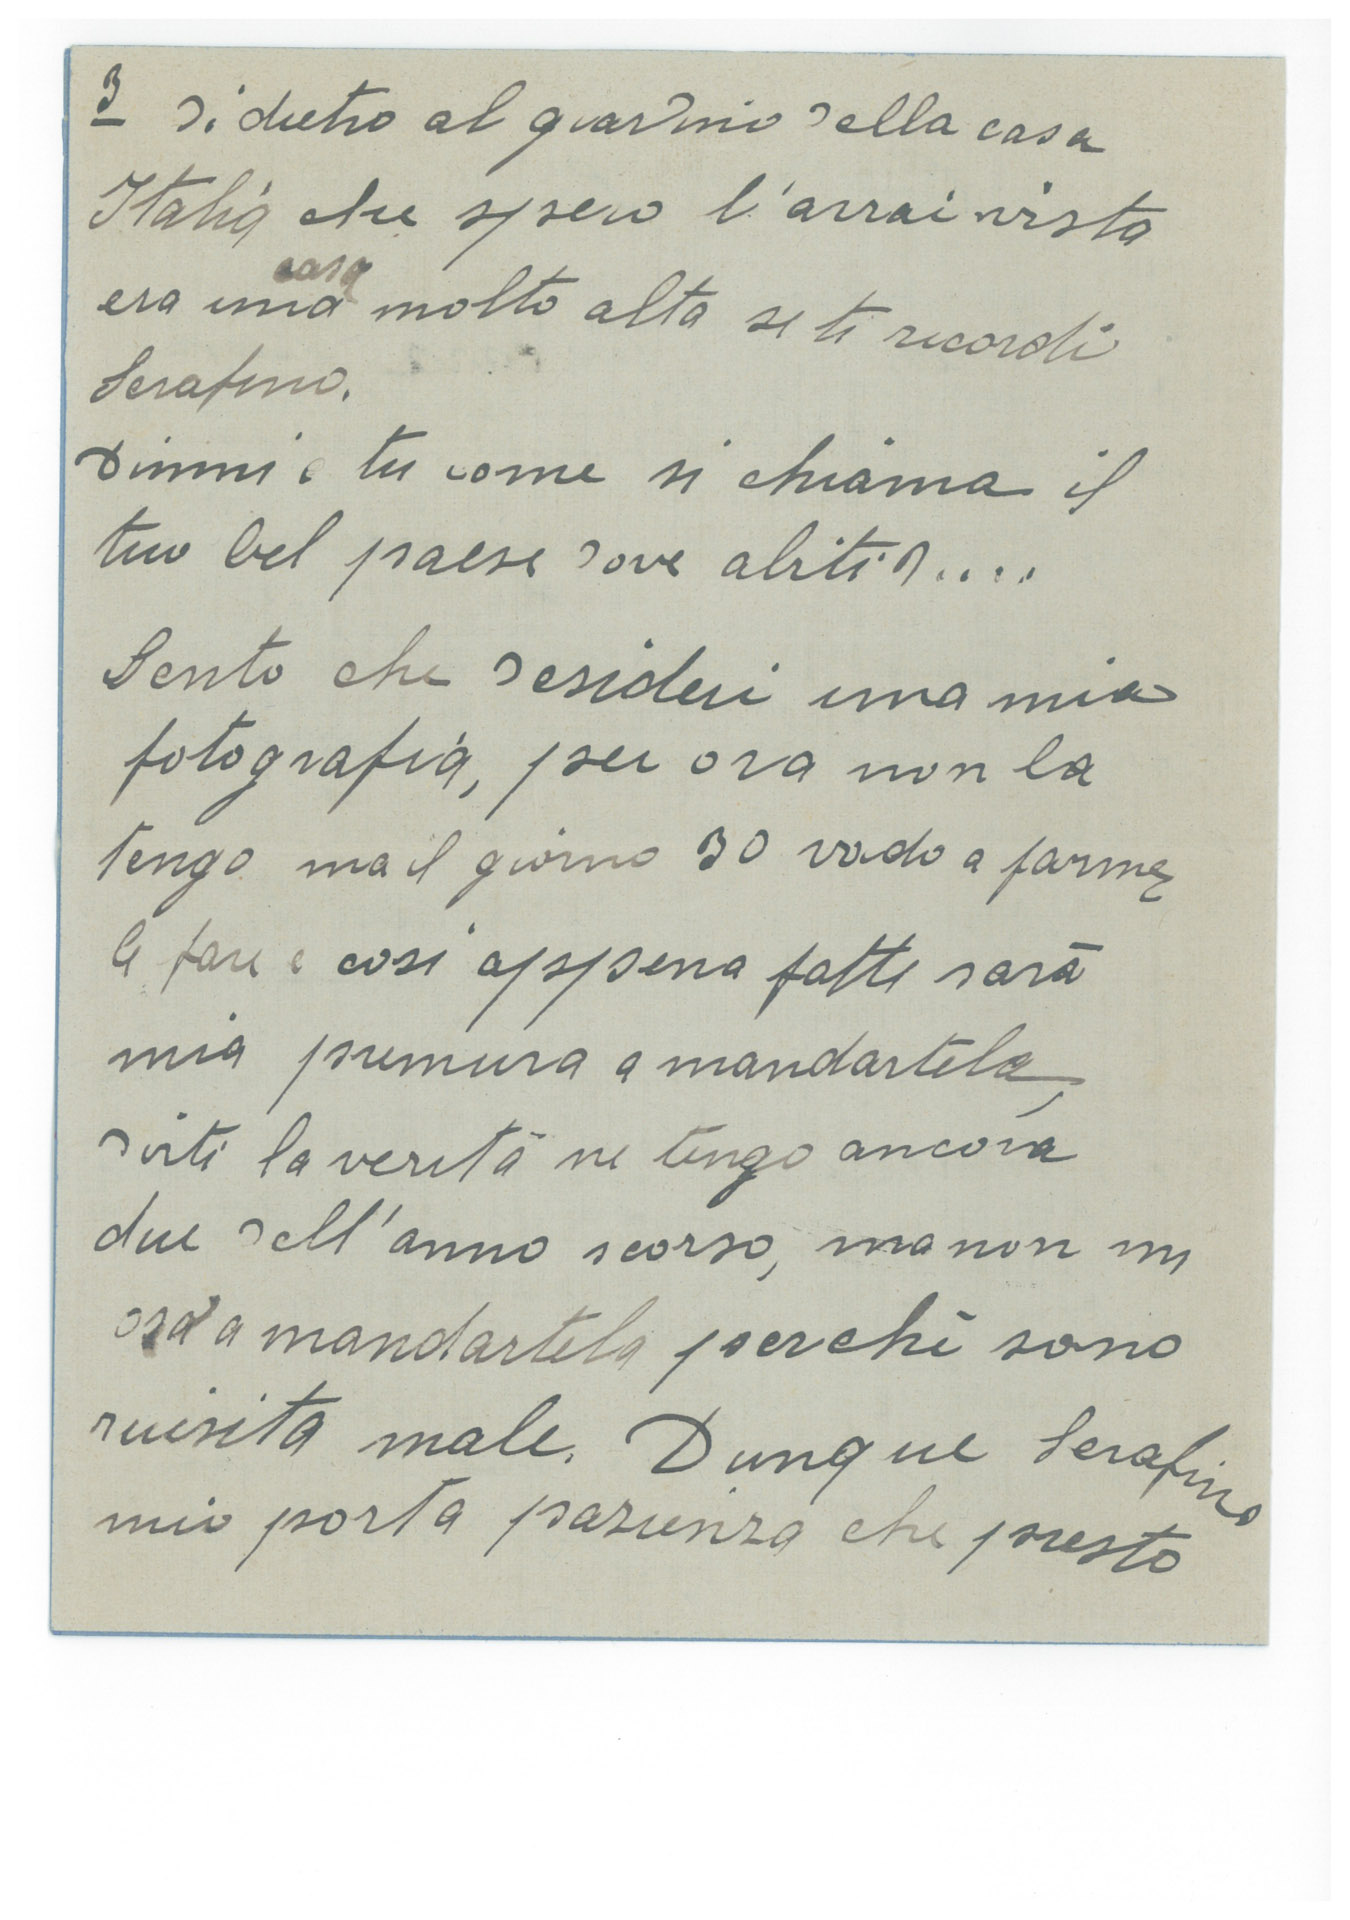 3 di dietro al giardino della casa
Italia che spero l'arrai vista
era una casa molto alta se ti ricordi
Serafino.
Dimmi e tu come si chiama il
tuo bel paese dove abiti?....
Sento che desideri una mia
fotografia, per ora non la
tengo ma il giorno 30 vado a farme
le fare e cosi appena fatte sarà
mia premura a mandartela,
dirti la verità ne tengo ancora
due dell'anno scorso, ma non mi
a mandartela perchè sono
ruisita male. Dunque Serafino
mio porta pazienza che presto